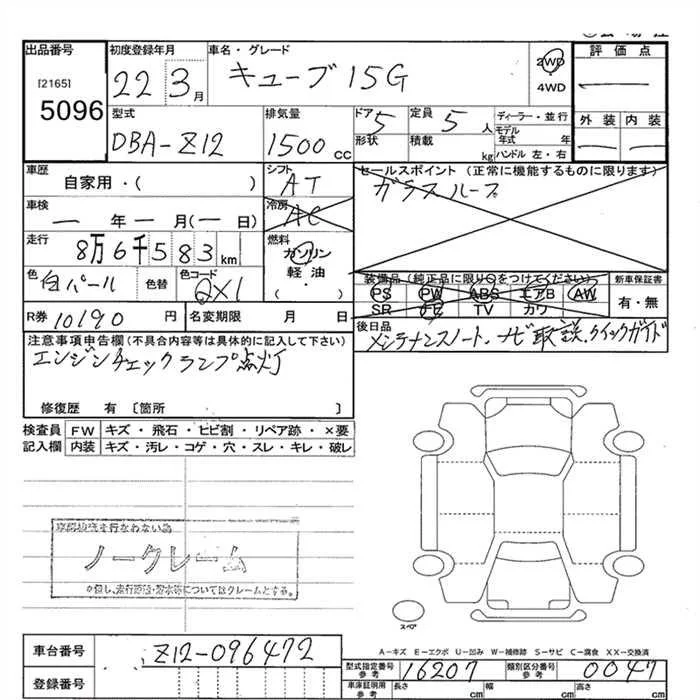 出品番号
[2165]
5096
初度登録年月
22 3月
車名・グレード
キューブ 15G
2WD
4WD
評価点
型式
DBA-Z12
排気量
1500cc
ドア 5
形状
定員 5人
積載 kg
ディーラー・並行
モデル年式 年
ハンドル 左・右
外装 内装
車歴
自家用・( )
シフト
AT
セールスポイント (正常に機能するものに限ります)
ガラスルーフ
車検
一年一月(一日)
冷房
AC
走行
8万6千583km
燃料
ガソリン
軽油
・( )
色
白パール
色替
色コード
QX1
装備品 (純正品に限り○をつけてください)
PS PW ABS エアB AW
SR ナビ TV カワ
新車保証書
有・無
R券 10190円
名変期限 月 日
後日品
メンテナンスノート、ナビ取説、クイックガイド
注意事項申告欄 (不具合内容等は具体的に記入して下さい)
エンジンチェックランプ点灯
修復歴 有 〔箇所 〕
検査員記入欄
FW キズ・飛石・ヒビ割・リペア跡・×要
内装 キズ・汚レ・コゲ・穴・スレ・キレ・破レ
ノークレーム
スペア
A-キズ E-エクボ U-凹み W-補修跡 S-サビ C-腐食 XX-交換済
車台番号
Z12-096472
登録番号
型式指定番号 参考
16207
類別区分番号 参考
0047
車庫証明用 参考
長さ cm
幅 cm
高さ cm